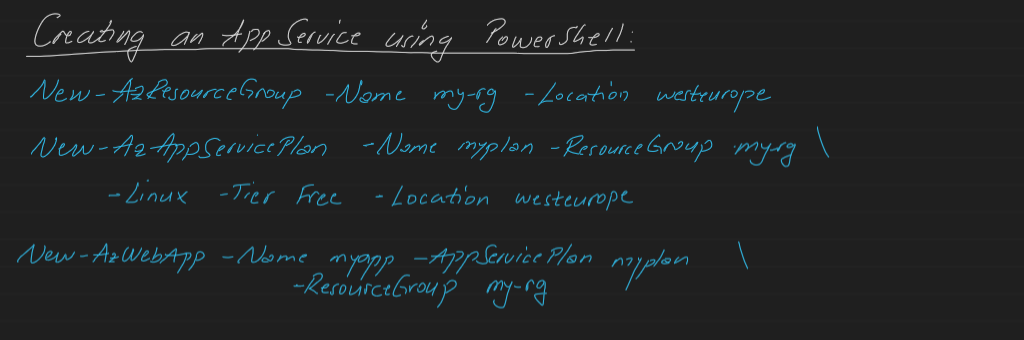 Creating an App Service using PowerShell:
New-AzResourceGroup -Name my-rg -Location westeurope
New-Az-AppServicePlan -Name myplan -ResourceGroup my-rg \
-Linux -Tier Free -Location westeurope
New-AzWebApp -Name myapp -AppServicePlan myplan \
-ResourceGroup my-rg